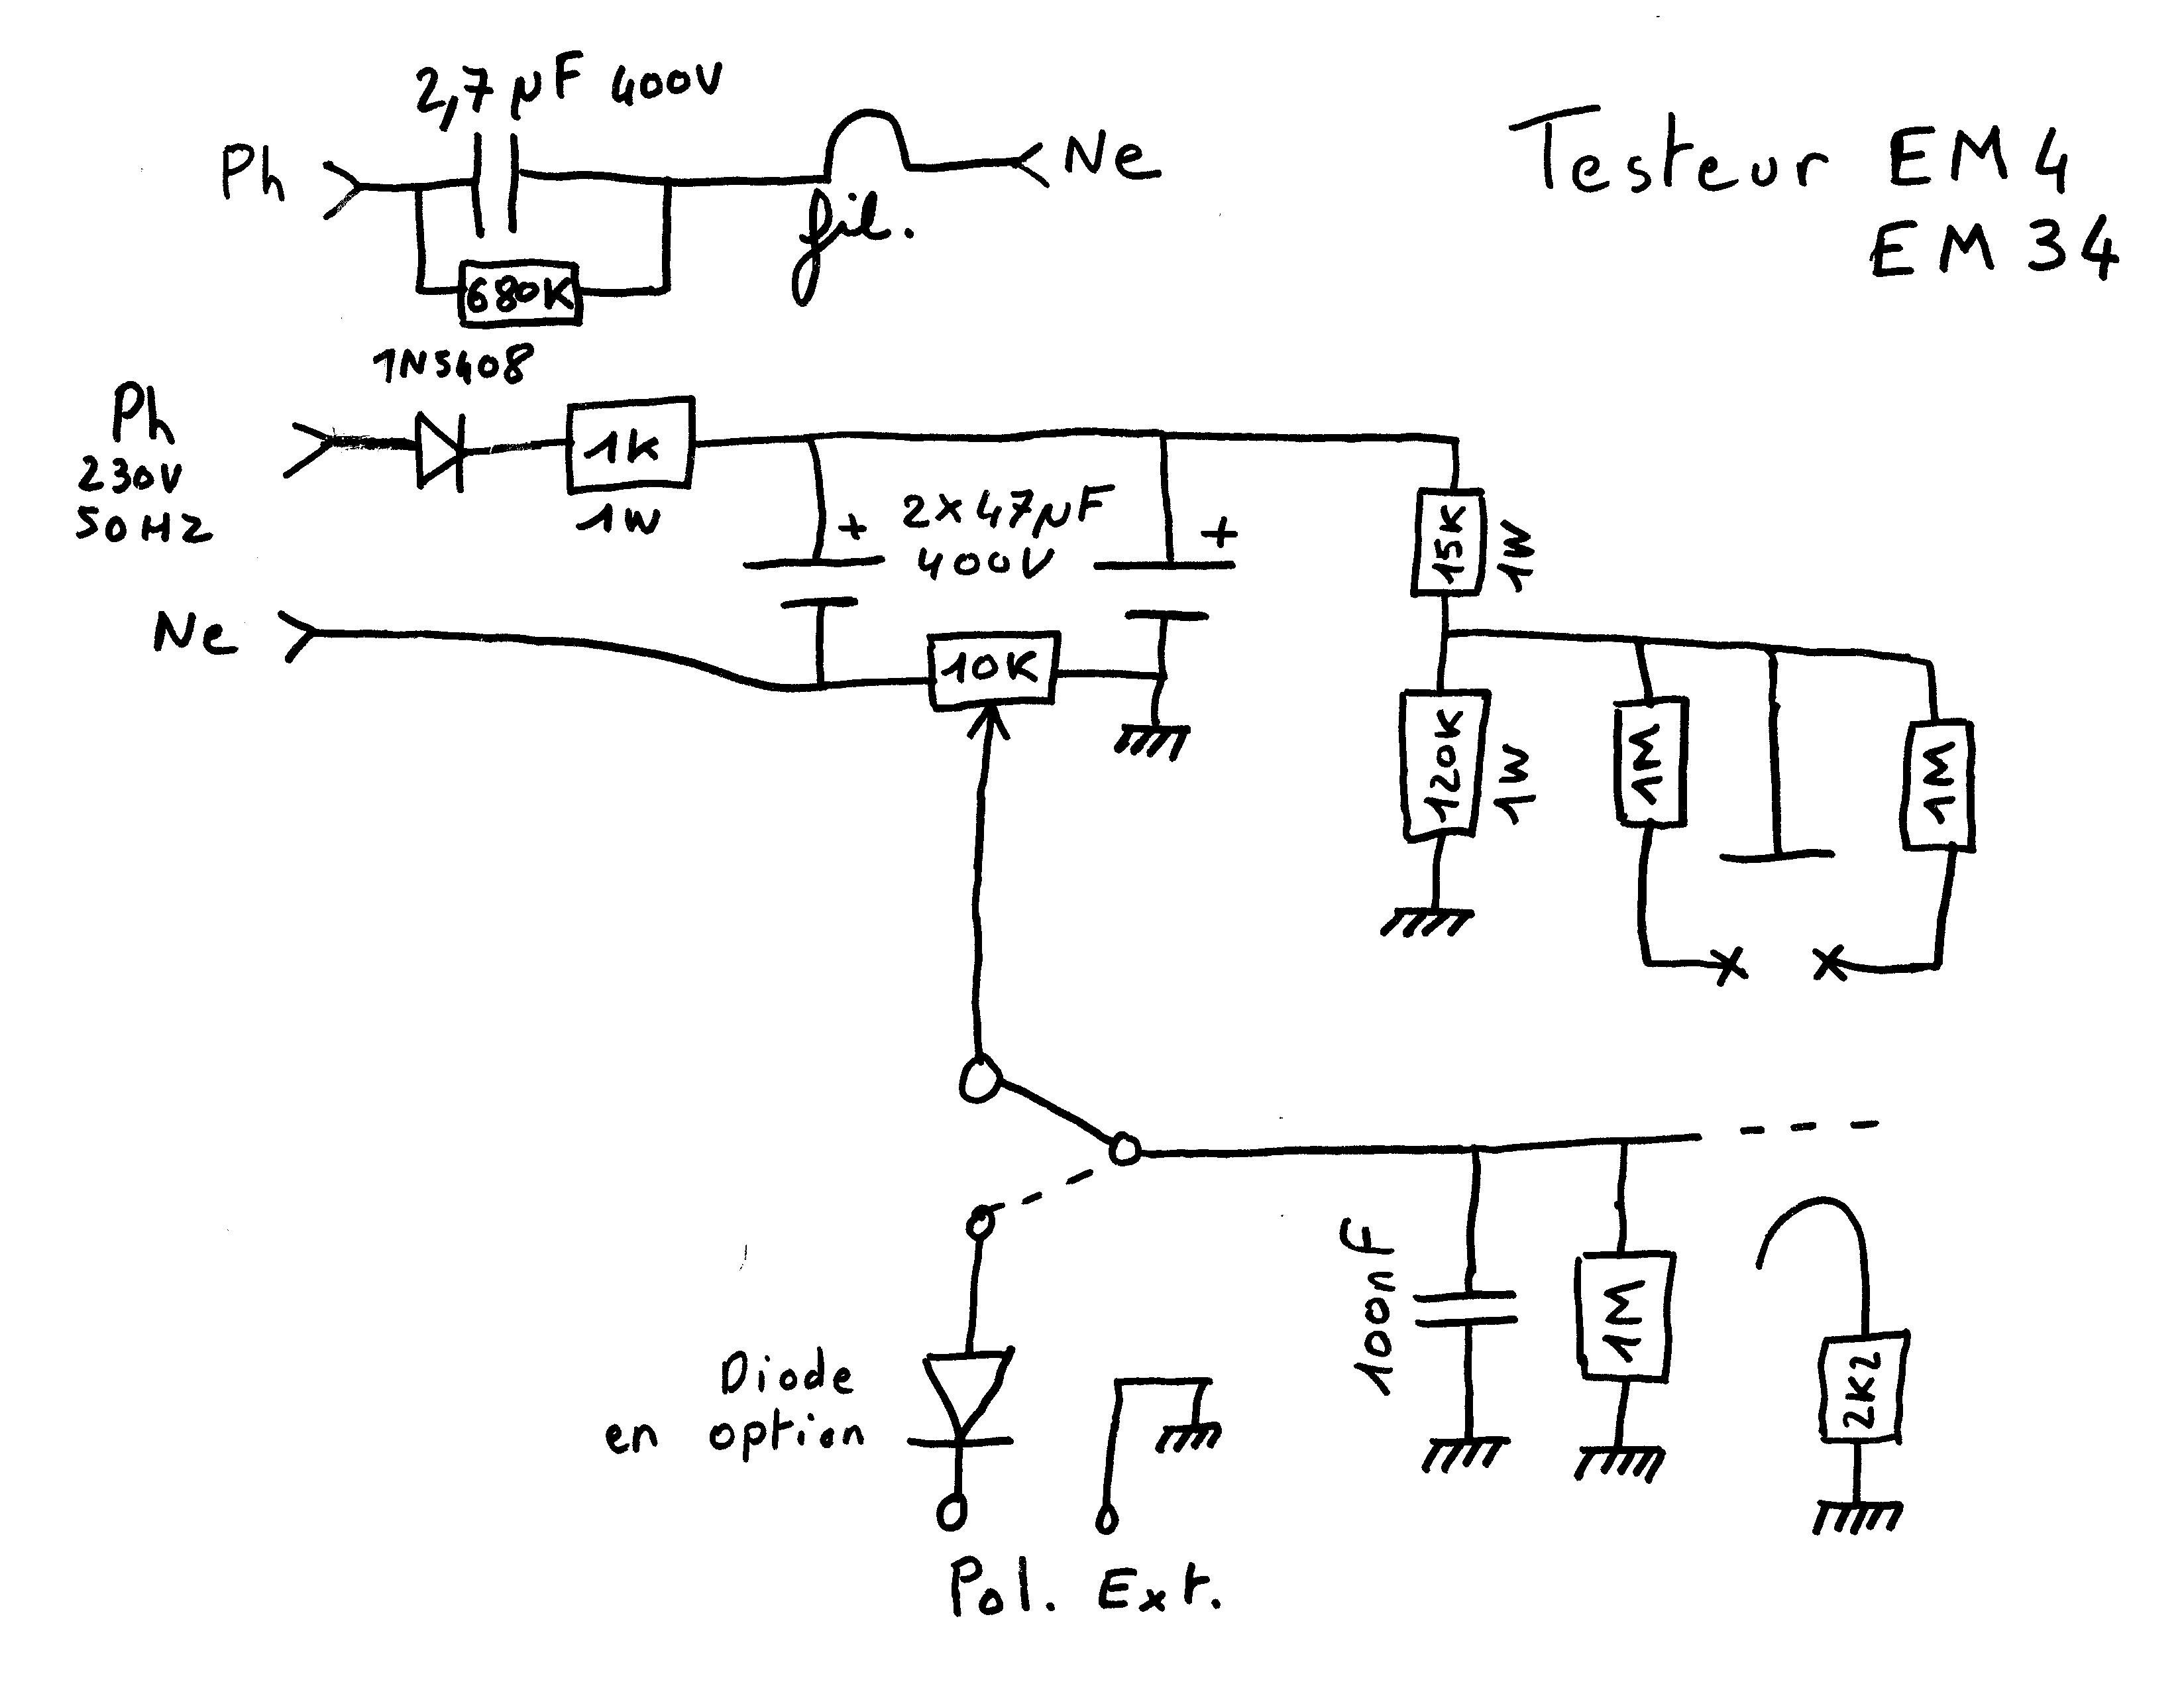 2,7 µF 400V
Ph
Ne
fil.
680K
Testeur EM4
EM34
1N5408
Ph
230V
50HZ
1K
1W
2x47µF
400V
+
+
15K
1W
Ne
10K
120K
1W
1M
1M
100nF
1M
2K2
Diode
en option
Pol. Ext.